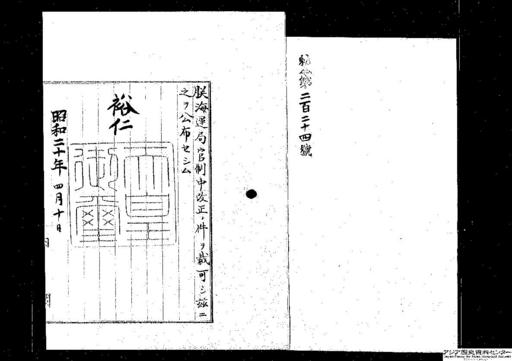 勅令第二百二十四號
朕海運局官制中改正ノ件ヲ裁可シ茲ニ
之ヲ公布セシム
裕仁
天皇御璽
昭和二十年四月十日
内閣
アジア歴史資料センター